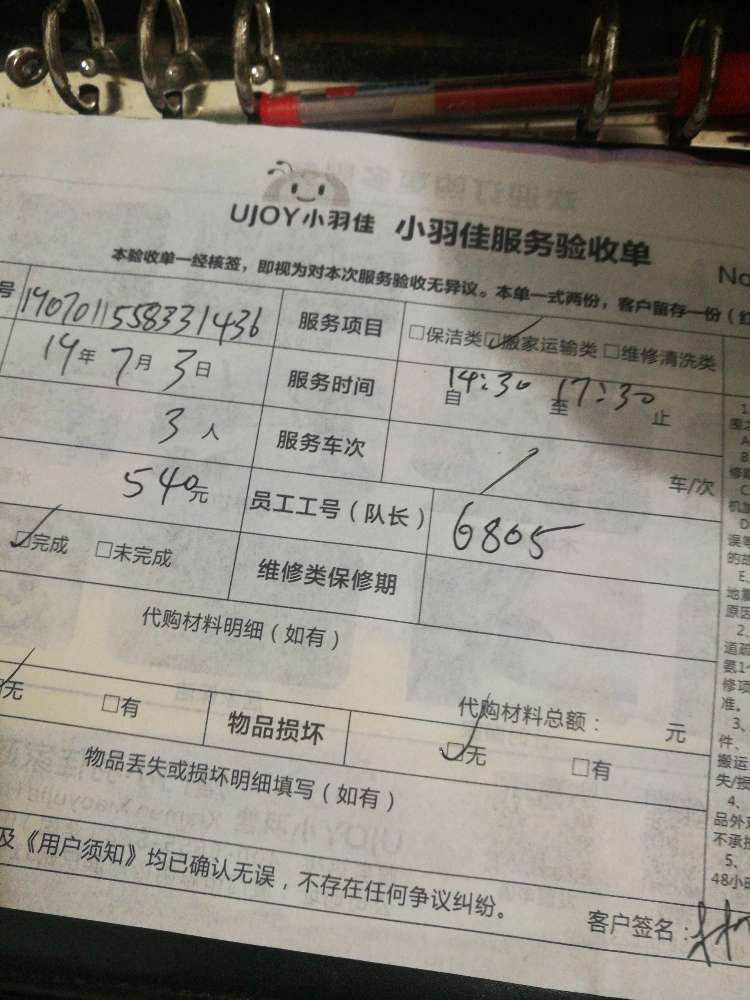 UJOY小羽佳 小羽佳服务验收单
No
本验收单一经核签，即视为对本次服务验收无异议。本单一式两份，客户留存一份（红
号 1907011558331436 服务项目 □保洁类☑搬家运输类□维修清洗类
19年7月3日 服务时间 自14:30至17:30止
3人 服务车次 / 车/次
540元 员工工号（队长） 6805
☑完成 □未完成 维修类保修期
代购材料明细（如有）
代购材料总额： 元
☑无 □有 物品损坏 ☑无 □有
物品丢失或损坏明细填写（如有）
及《用户须知》均已确认无误，不存在任何争议纠纷。
客户签名：
A
B
C
机
D
误等
的
E
地震
原因
2、
道疏
氨1个
修项
准。
3、
件、
搬运
失/损
4、
品外
不承担
5、
48小时